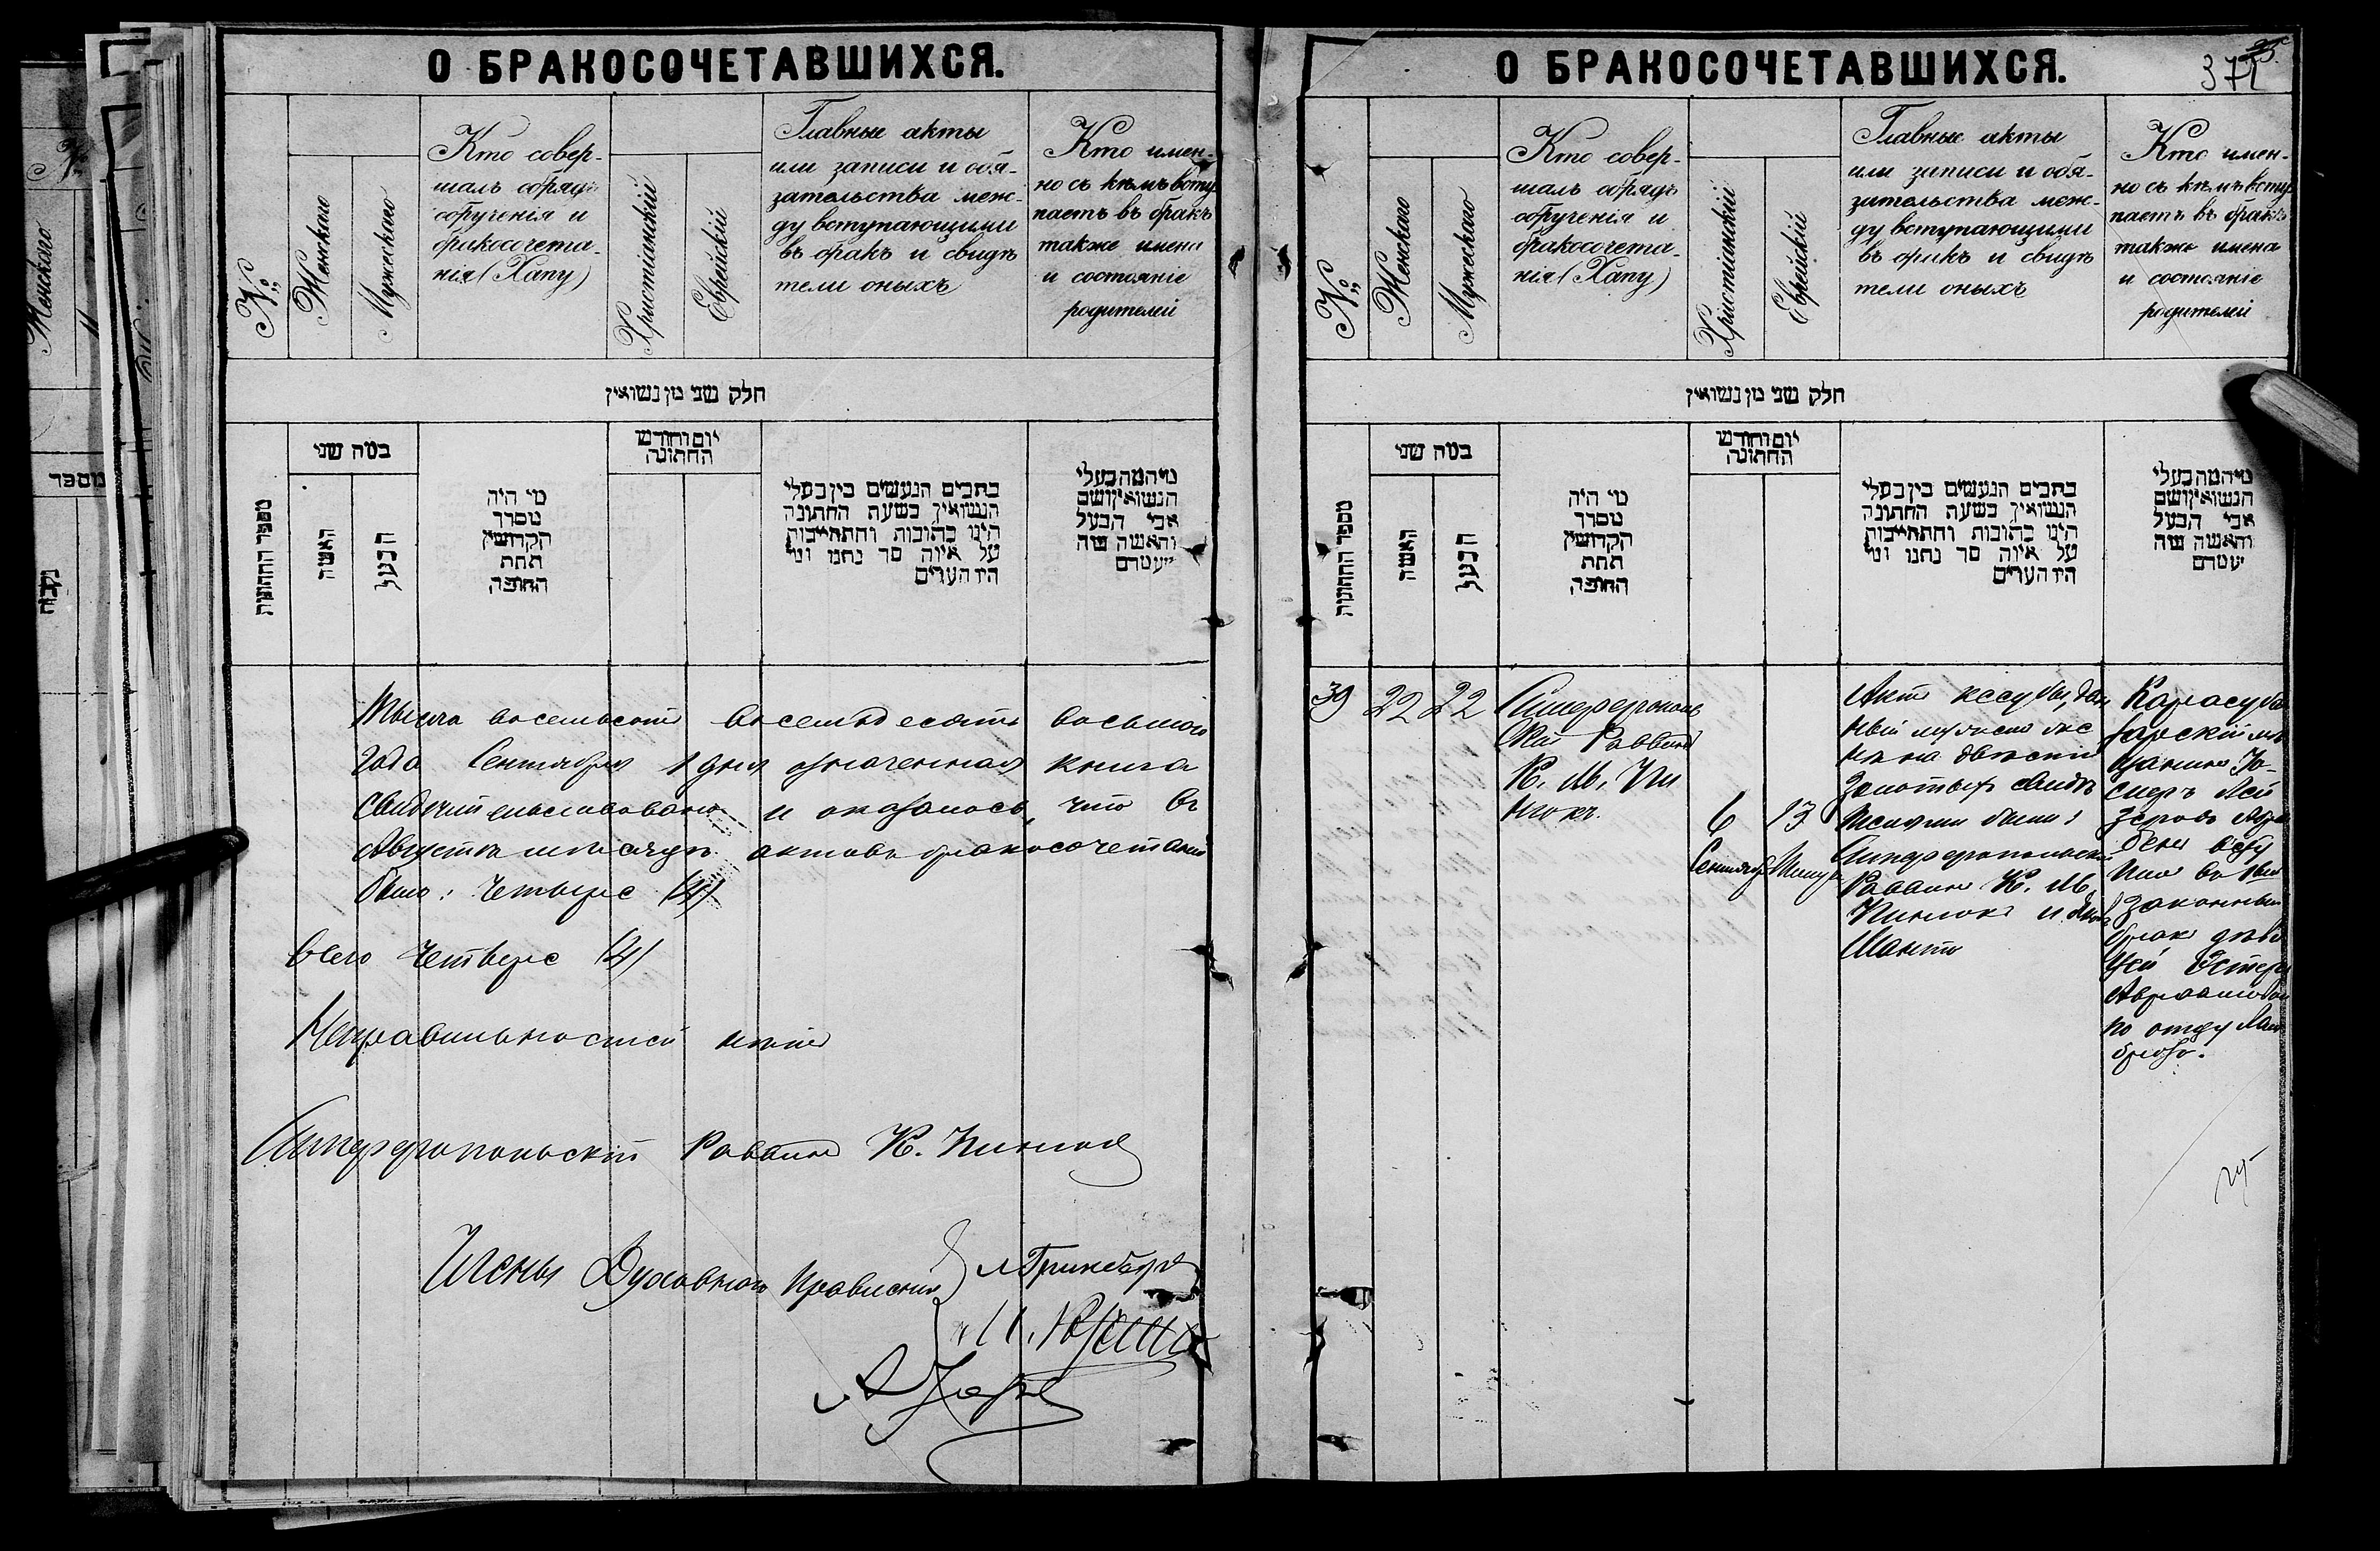 О БРАКОСОЧЕТАВШИХСЯ.
№
Женскаго
Мужескаго
Кто совер-
шалъ обрядъ
обрученія и
бракосочета-
нія (Хапу)
Христіанскій
Еврейскій
Главные акты
или записи и обя-
зательства меж-
ду вступающими
въ бракъ и свидѣ
тели оныхъ
Кто имен-
но съ кѣмъ всту
паетъ въ бракъ
также имена
и состояніе
родителей
חלק שני מן נשואין
מספר החתונות
במה שני
האשה
הבעל
מי היה
מסדר
הקדושין
תחת
החופה
יום וחודש
החתונה
כתבים הנעשים בין בעלי
הנשואין בשעת החתונה
היינו כתובות והתחייבות
על איזה סך נתנו ומי
היו העדים
מי המה בעלי
הנשואין ושם
אבי הבעל
והאשה ומה
מעמדם
Тысяча восемьсотъ восемьдесятъ восьмого
года Сентября 1 дня означенная книга
свидѣтельствована и оказалось, что въ
Августѣ мѣсяцѣ актовъ бракосочетаній
было: четыре (4)
Всего четыре (4)
Неправильностей нѣтъ
Симферопольскій Раввинъ К. Пинюкъ
Члены Духовнаго Правленія
О БРАКОСОЧЕТАВШИХСЯ.
371
№
Женскаго
Мужескаго
Кто совер-
шалъ обрядъ
обрученія и
бракосочета-
нія (Хапу)
Христіанскій
Еврейскій
Главные акты
или записи и обя-
зательства меж-
ду вступающими
въ бракъ и свидѣ
тели оныхъ
Кто имен-
но съ кѣмъ всту
паетъ въ бракъ
также имена
и состояніе
родителей
חלק שני מן נשואין
מספר החתונות
במה שני
האשה
הבעל
מי היה
מסדר
הקדושין
תחת
החופה
יום וחודש
החתונה
כתבים הנעשים בין בעלי
הנשואין בשעת החתונה
היינו כתובות והתחייבות
על איזה סך נתנו ומי
היו העדים
מי המה בעלי
הנשואין ושם
אבי הבעל
והאשה ומה
מעמדם
39
22
22
Симферополь
скій Раввинъ
К. М. Пи
нюкъ.
6
Сентябр
13
Тишри
Актъ кесубы, дан
ный мужемъ
на двѣсти
золотыхъ свидѣ
телями были:
Симферопольскі
Раввинъ К. М.
Пинюкъ и
Карасуба
зарскій мѣ
щанинъ Іо-
сифъ
всту
пилъ въ 1вый
законный
бракъ дѣви
цей Эстеръ
Авраамовой
по отцу Лом
брозо.